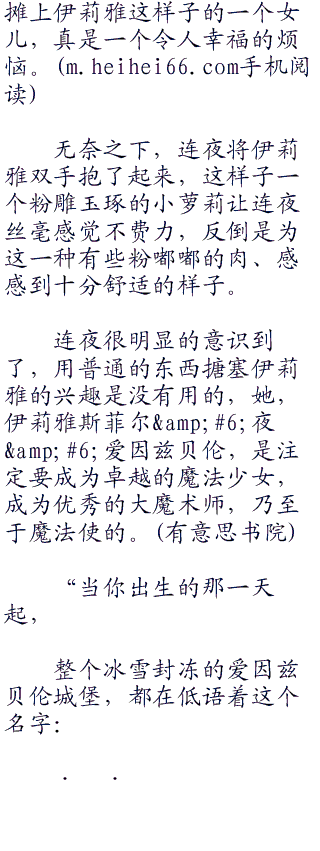 摊上伊莉雅这样子的一个女
儿，真是一个令人幸福的烦
恼。(m.heihei66.com手机阅
读)
无奈之下，连夜将伊莉
雅双手抱了起来，这样子一
个粉雕玉琢的小萝莉让连夜
丝毫感觉不费力，反倒是为
这一种有些粉嘟嘟的肉、感
感到十分舒适的样子。
连夜很明显的意识到
了，用普通的东西搪塞伊莉
雅的兴趣是没有用的，她，
伊莉雅斯菲尔&amp;#6;夜
&amp;#6;爱因兹贝伦，是注
定要成为卓越的魔法少女，
成为优秀的大魔术师，乃至
于魔法使的。(有意思书院)
“当你出生的那一天
起，
整个冰雪封冻的爱因兹
贝伦城堡，都在低语着这个
名字：
．．